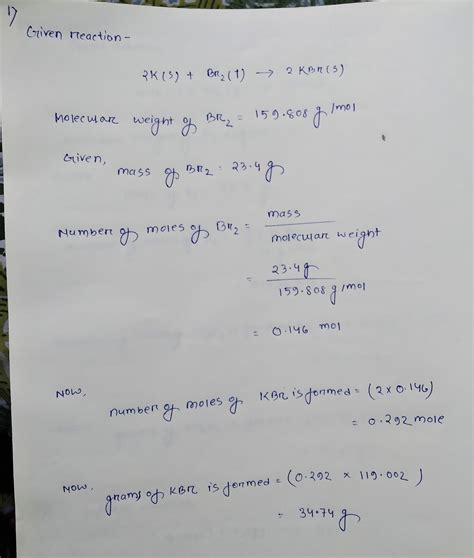 1)
Given reaction-
2K(s) + Br2(l) → 2KBr(s)
Molecular weight of Br2 = 159.808 g/mol
Given,
mass of Br2 = 23.4g
Number of moles of Br2 = mass
molecular weight
= 23.4g
159.808 g/mol
= 0.146 mol
NOW,
number of moles of KBr is formed = (2 x 0.146)
= 0.292 mole
NOW,
grams of KBr is formed = (0.292 x 119.002)
= 34.74 g